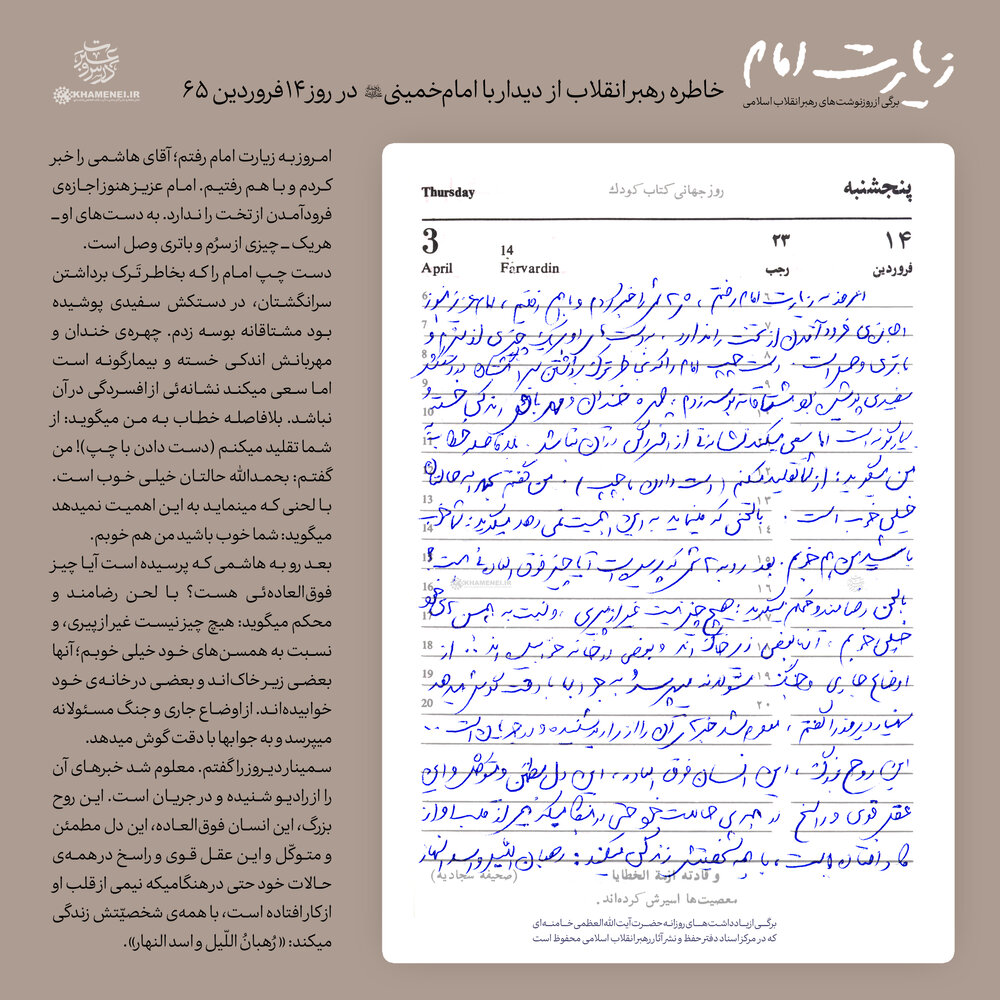 زیارت امام
برگی از روزنوشت‌های رهبر انقلاب اسلامی
خاطره رهبر انقلاب از دیدار با امام خمینی در روز ۱۴ فروردین ۶۵
درس و عبرت
KHAMENEI.IR
پنجشنبه
روز جهانی کتاب کودك
Thursday
۱۴
۲۳
14
3
فروردین
رجب
Farvardin
April
امروز به زیارت امام رفتم، هاشمی را خبر کردم و با هم رفتیم، امام عزیز هنوز
اجازه‌ی فرود آمدن از تخت را ندارد. به دستهای او هریک چیزی از سرم و
باتری وصل است. دست چپ امام را که بخاطر ترک برداشتن سرانگشتان در دستکش
سفیدی پوشیده بود مشتاقانه بوسه زدم، چهره خندان و مهربانش اندکی خسته و
بیمارگونه است اما سعی میکند نشانه‌ئی از افسردگی در آن نباشد. بلافاصله خطاب به
من میگوید: از شما تقلید میکنم (دست دادن با چپ). من گفتم بحمدالله حالتان
خیلی خوب است. با لحنی که مینماید به این اهمیت نمی‌دهد میگوید: شما خوب
باشید من هم خوبم. بعد رو به هاشمی که پرسیده است آیا چیز فوق العاده‌ئی هست؟
با لحن رضامند و محکم میگوید: هیچ چیز نیست غیر از پیری، و نسبت به همسن های خود
خیلی خوبم، آنها بعضی زیر خاک‌اند و بعضی در خانه خوابیده‌اند... از
اوضاع جاری و جنگ مسئولانه میپرسد و به جوابها با دقت گوش میدهد
سمینار دیروز را گفتم، معلوم شد خبرهای آن را از رادیو شنیده و در جریان است...
این روح بزرگ، این انسان فوق العاده، این دل مطمئن و متوکل و این
عقل قوی و راسخ در همه‌ی حالات خود حتی در هنگامیکه نیمی از قلب او از
کار افتاده است، با همه شخصیتش زندگی میکند: رهبان اللیل و اسد النهار
و قادته ازمة الخطایا
(صحیفة سجادیة)
معصیت‌ها اسیرش کرده‌اند.
برگی از یادداشت‌های روزانه حضرت آیت‌الله العظمی خامنه‌ای
که در مرکز اسناد دفتر حفظ و نشر آثار رهبر انقلاب اسلامی محفوظ است
امروز به زیارت امام رفتم؛ آقای هاشمی را خبر
کردم و با هم رفتیم. امام عزیز هنوز اجازه‌ی
فرود آمدن از تخت را ندارد. به دست‌های او ــ
هریک ــ چیزی از سرُم و باتری وصل است.
دست چپ امام را که بخاطر تَرک برداشتن
سرانگشتان، در دستکش سفیدی پوشیده
بود مشتاقانه بوسه زدم. چهره‌ی خندان و
مهربانش اندکی خسته و بیمارگونه است
اما سعی میکند نشانه‌ئی از افسردگی در آن
نباشد. بلافاصله خطاب به من میگوید: از
شما تقلید میکنم (دست دادن با چپ)! من
گفتم: بحمدالله حالتان خیلی خوب است.
با لحنی که مینماید به این اهمیت نمیدهد
میگوید: شما خوب باشید من هم خوبم.
بعد رو به هاشمی که پرسیده است آیا چیز
فوق‌العاده‌ئی هست؟ با لحن رضامند و
محکم میگوید: هیچ چیز نیست غیر از پیری، و
نسبت به همسن‌های خود خیلی خوبم؛ آنها
بعضی زیر خاک‌اند و بعضی در خانه‌ی خود
خوابیده‌اند. از اوضاع جاری و جنگ مسئولانه
میپرسد و به جوابها با دقت گوش میدهد.
سمینار دیروز را گفتم. معلوم شد خبرهای آن
را از رادیو شنیده و در جریان است. این روح
بزرگ، این انسان فوق‌العاده، این دل مطمئن
و متوکّل و این عقل قوی و راسخ در همه‌ی
حالات خود حتی در هنگامیکه نیمی از قلب او
از کار افتاده است، با همه‌ی شخصیّتش زندگی
میکند: «رُهبانُ اللّیل و اسد النهار».